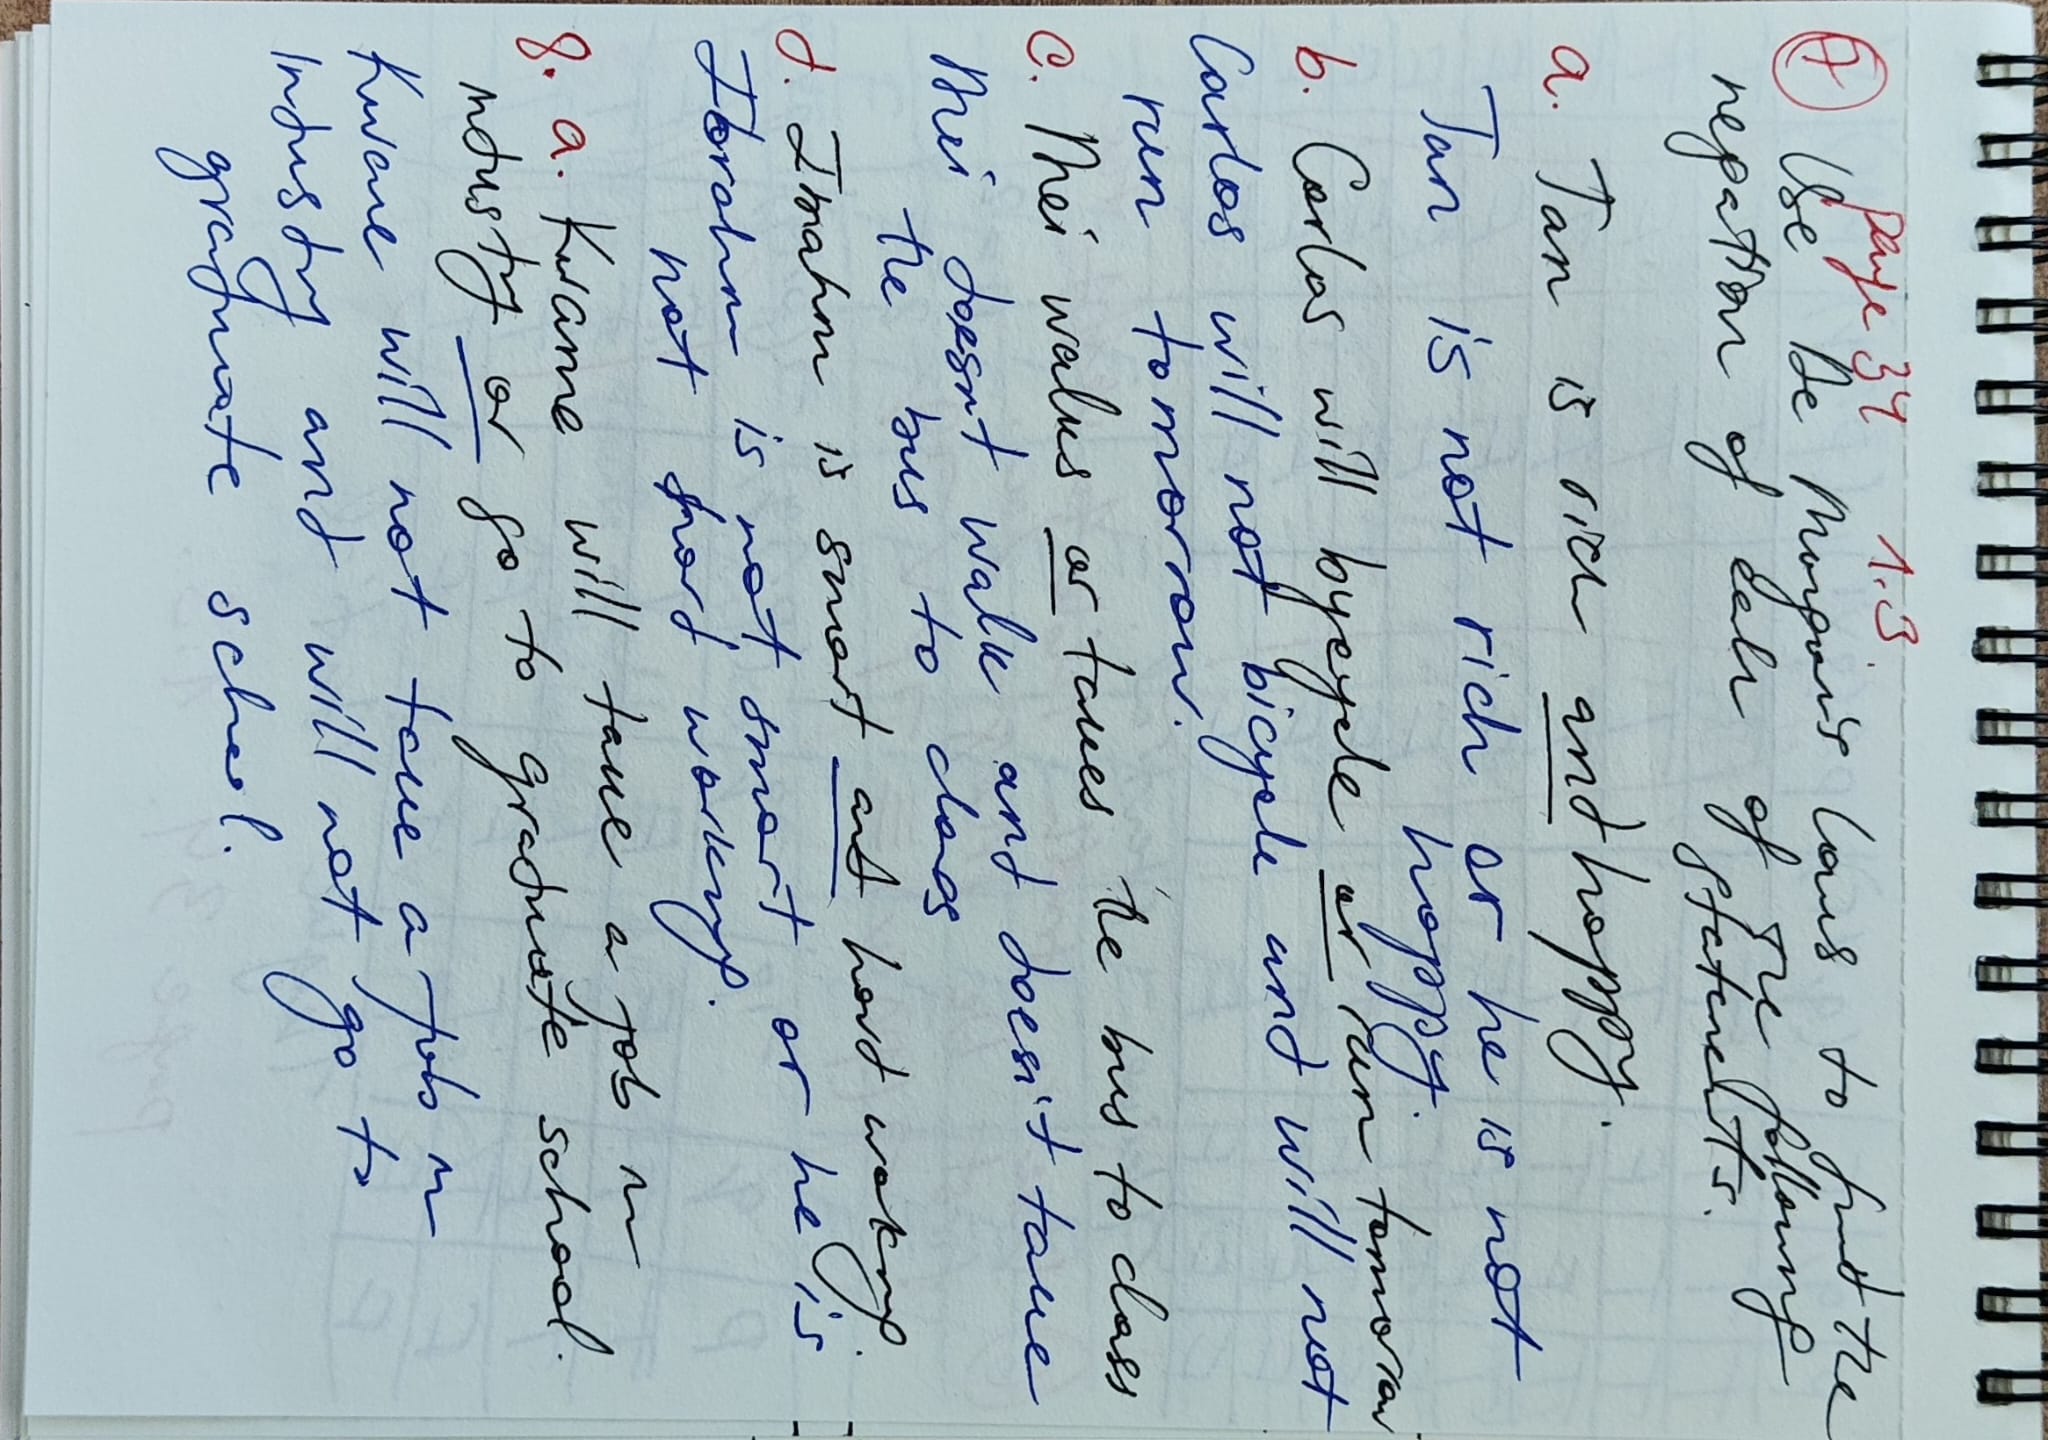 page 34 1.3
7 Use De Morgan's laws to find the
negation of each of the following
statements.
a. Jan is rich and happy.
Jan is not rich or he is not
happy.
b. Carlos will bycycle or run tomorrow
Carlos will not bicycle and will not
run tomorrow.
c. Mei walks or takes the bus to class
Mei doesnt walk and doesn't take
the bus to class
d. Ibrahim is smart and hard working.
Ibrahim is not smart or he is
not hard working.
8. a. Kwame will take a job in
industry or go to graduate school.
Kwame will not take a job in
industry and will not go to
graduate school.